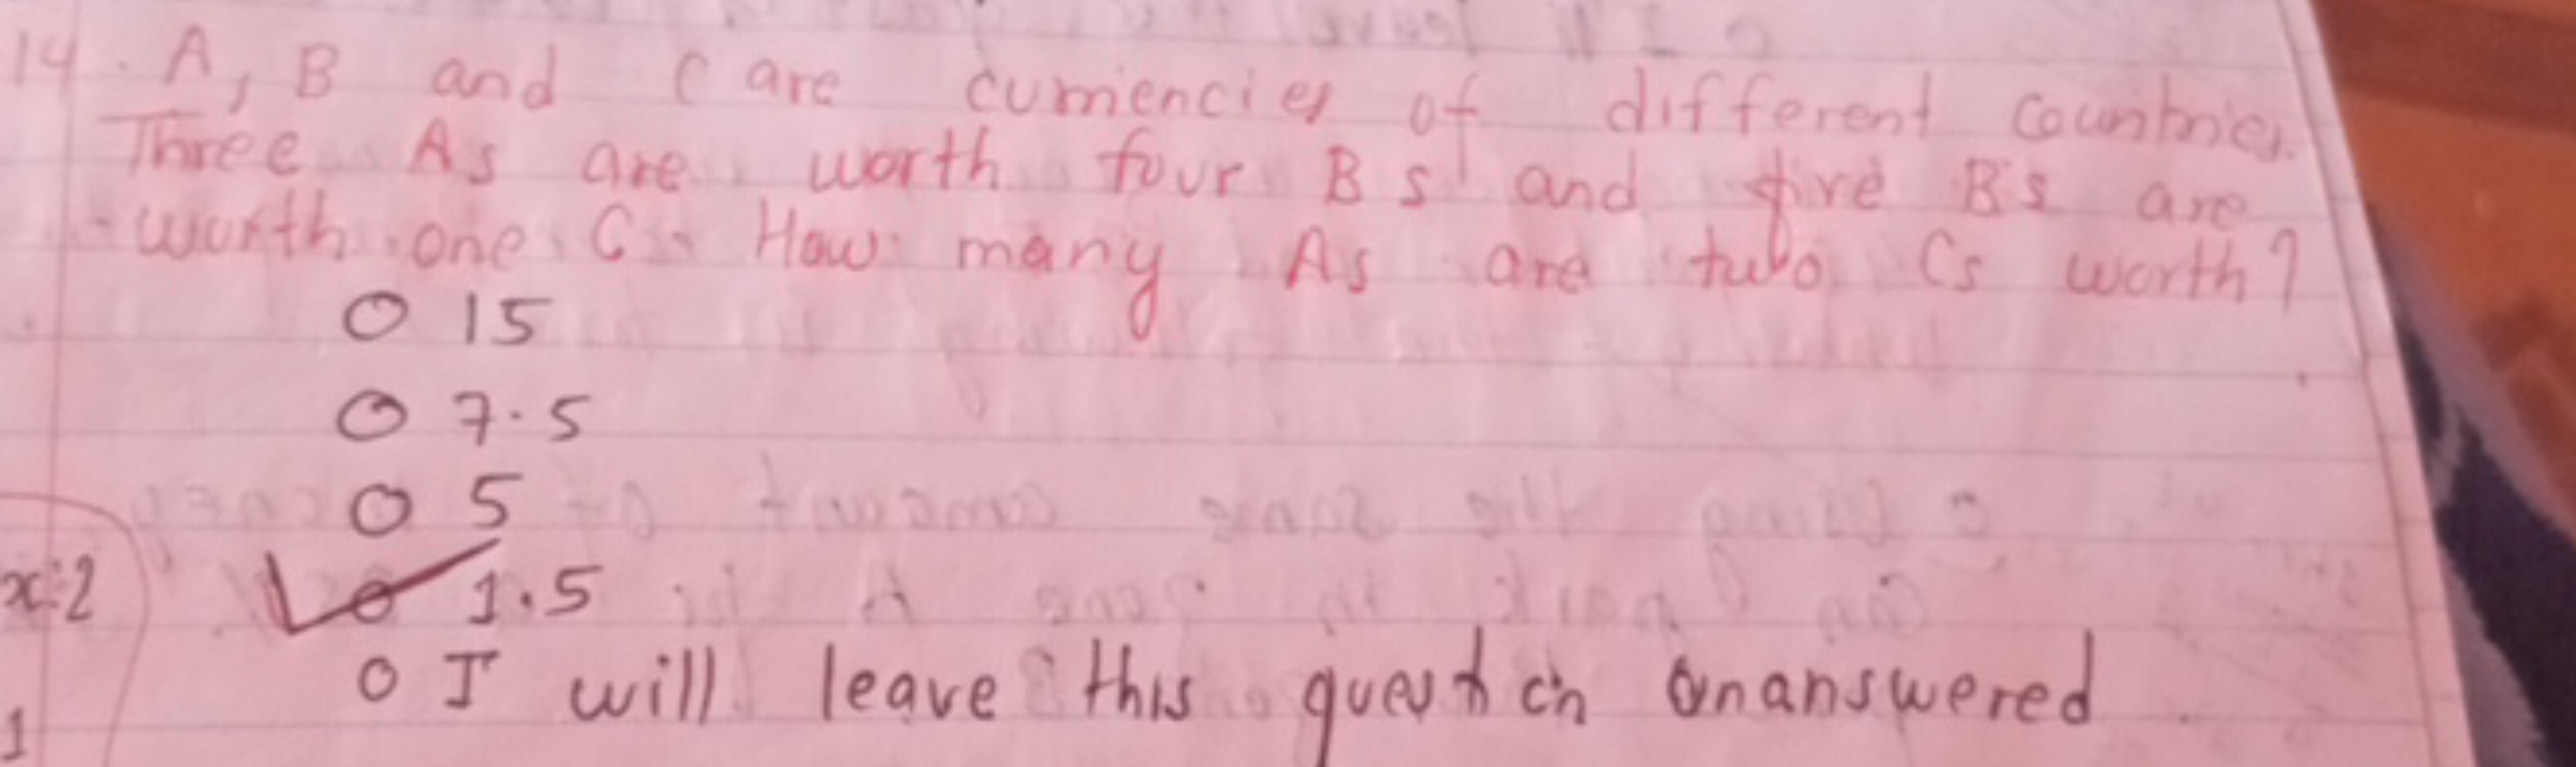 14. A, B and C are currencies of different countries.
Three As are worth four B s and five B's are
worth one C. How many As are two Cs worth?
O 15
O 7.5
O 5
O 1.5
x=2
O I will leave this question unanswered
1